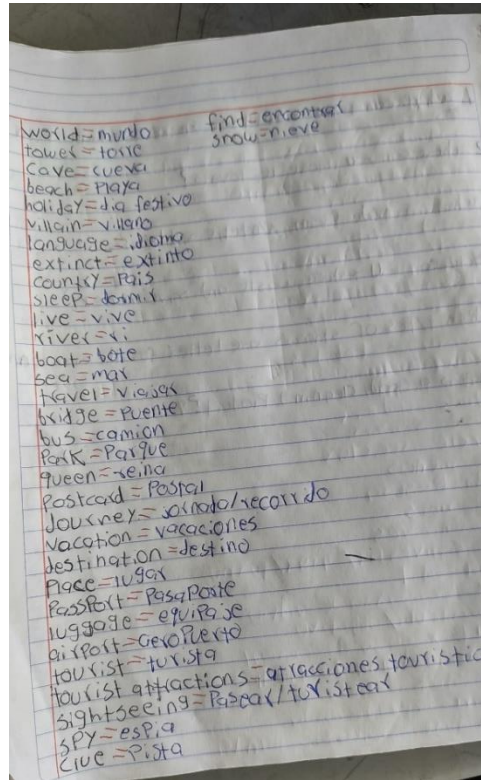 world=mundo
tower=torre
Cave=cueva
beach=Playa
holiday=dia festivo
Villain=Villano
language=idioma
extinct=extinto
country=Pais
sleep=dormir
live=vive
river=ri
boat=bote
sea=mar
travel=viajar
bridge=Puente
bus=camion
Park=Parque
queen=reina
Postcard=Postal
Journey=jornada/recorrido
Vacation=vacaciones
destination=destino
Place=lugar
PassPort=PasaPorte
luggage=equiPaje
airPort=aeroPuerto
tourist=turista
tourist attractions=atracciones touristic
sightseeing=Pasear/turistear
SPY=esPia
Clue=Pista
find=encontrar
snow=nieve